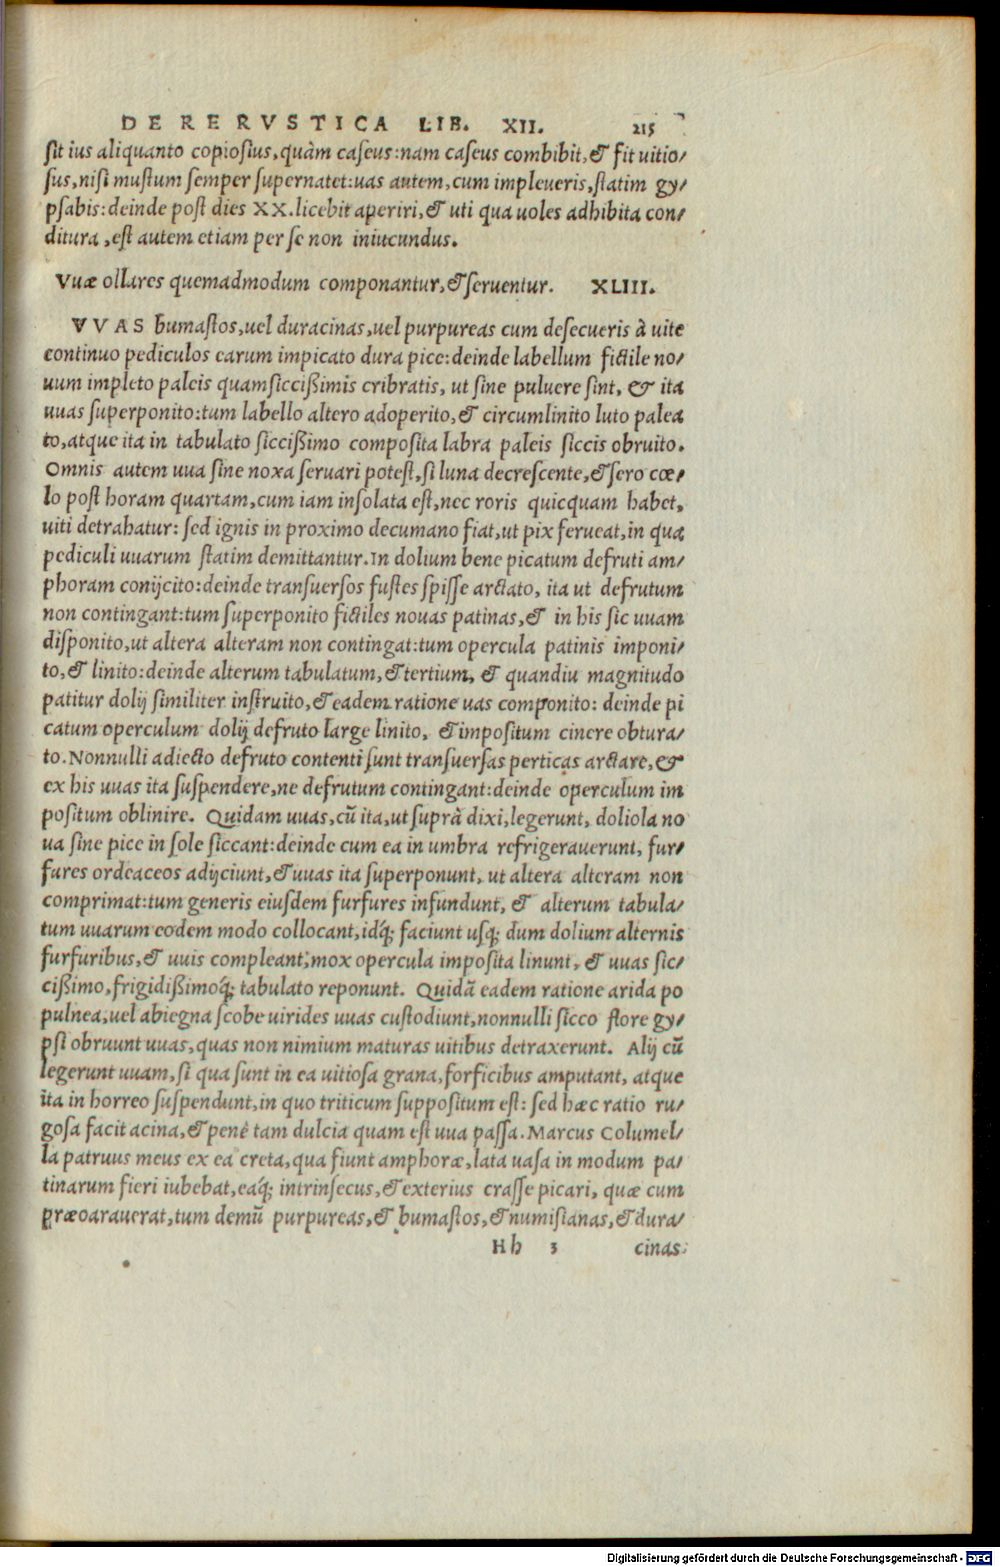 DE RE RVSTICA LIB. XII. 215
ſit ius aliquanto copioſius, quàm caſeus: nam caſeus combibit, & fit uitio/
ſus, niſi muſtum ſemper ſupernatet: uas autem, cum impleueris, ſtatim gy/
pſabis: deinde poſt dies XX. licebit aperiri, & uti qua uoles adhibita con/
ditura, eſt autem etiam per ſe non iniucundus.
Vuæ ollares quemadmodum componantur, & ſeruentur. XLIII.
VVAS bumaſtos, uel duracinas, uel purpureas cum deſecueris à uite
continuo pediculos earum impicato dura pice: deinde labellum fictile no/
uum impleto paleis quam ſicciſſimis cribratis, ut ſine puluere ſint, & ita
uuas ſuperponito: tum labello altero adoperito, & circumlinito luto palea
to, atque ita in tabulato ſicciſſimo compoſita labra paleis ſiccis obruito.
Omnis autem uua ſine noxa ſeruari poteſt, ſi luna decreſcente, & ſero cœ/
lo poſt horam quartam, cum iam inſolata eſt, nec roris quicquam habet,
uiti detrahatur: ſed ignis in proximo decumano fiat, ut pix ferueat, in qua
pediculi uuarum ſtatim demittantur. In dolium bene picatum defruti am/
phoram conijcito: deinde tranſuerſos fuſtes ſpiſſe arctato, ita ut defrutum
non contingant: tum ſuperponito fictiles nouas patinas, & in his ſic uuam
diſponito, ut altera alteram non contingat: tum opercula patinis imponi/
to, & linito: deinde alterum tabulatum, & tertium, & quandiu magnitudo
patitur dolij ſimiliter inſtruito, & eadem ratione uas componito: deinde pi
catum operculum dolij defruto large linito, & impoſitum cinere obtura/
to. Nonnulli adiecto defruto contenti ſunt tranſuerſas perticas arctare, &
ex his uuas ita ſuſpendere, ne defrutum contingant: deinde operculum im
poſitum oblinire. Quidam uuas, cū ita, ut ſuprà dixi, legerunt, doliola no
ua ſine pice in ſole ſiccant: deinde cum ea in umbra refrigerauerunt, fur/
fures ordeaceos adijciunt, & uuas ita ſuperponunt, ut altera alteram non
comprimat: tum generis eiuſdem furfures infundunt, & alterum tabula/
tum uuarum eodem modo collocant, idq́; faciunt uſq; dum dolium alternis
furfuribus, & uuis compleant, mox opercula impoſita linunt, & uuas ſic/
ciſſimo, frigidiſſimoq́; tabulato reponunt. Quidā eadem ratione arida po
pulnea, uel abiegna ſcobe uirides uuas cuſtodiunt, nonnulli ſicco flore gy/
pſi obruunt uuas, quas non nimium maturas uitibus detraxerunt. Alij cū
legerunt uuam, ſi qua ſunt in ea uitioſa grana, forficibus amputant, atque
ita in horreo ſuſpendunt, in quo triticum ſuppoſitum eſt: ſed hæc ratio ru/
goſa facit acina, & penè tam dulcia quam eſt uua paſſa. Marcus Columel/
la patruus meus ex ea creta, qua fiunt amphoræ, lata uaſa in modum pa/
tinarum fieri iubebat, eaq́; intrinſecus, & exterius craſſe picari, quæ cum
præoarauerat, tum demū purpureas, & bumaſtos, & numiſianas, & dura/
Hh 3 cinas
Digitalisierung gefördert durch die Deutsche Forschungsgemeinschaft - DFG